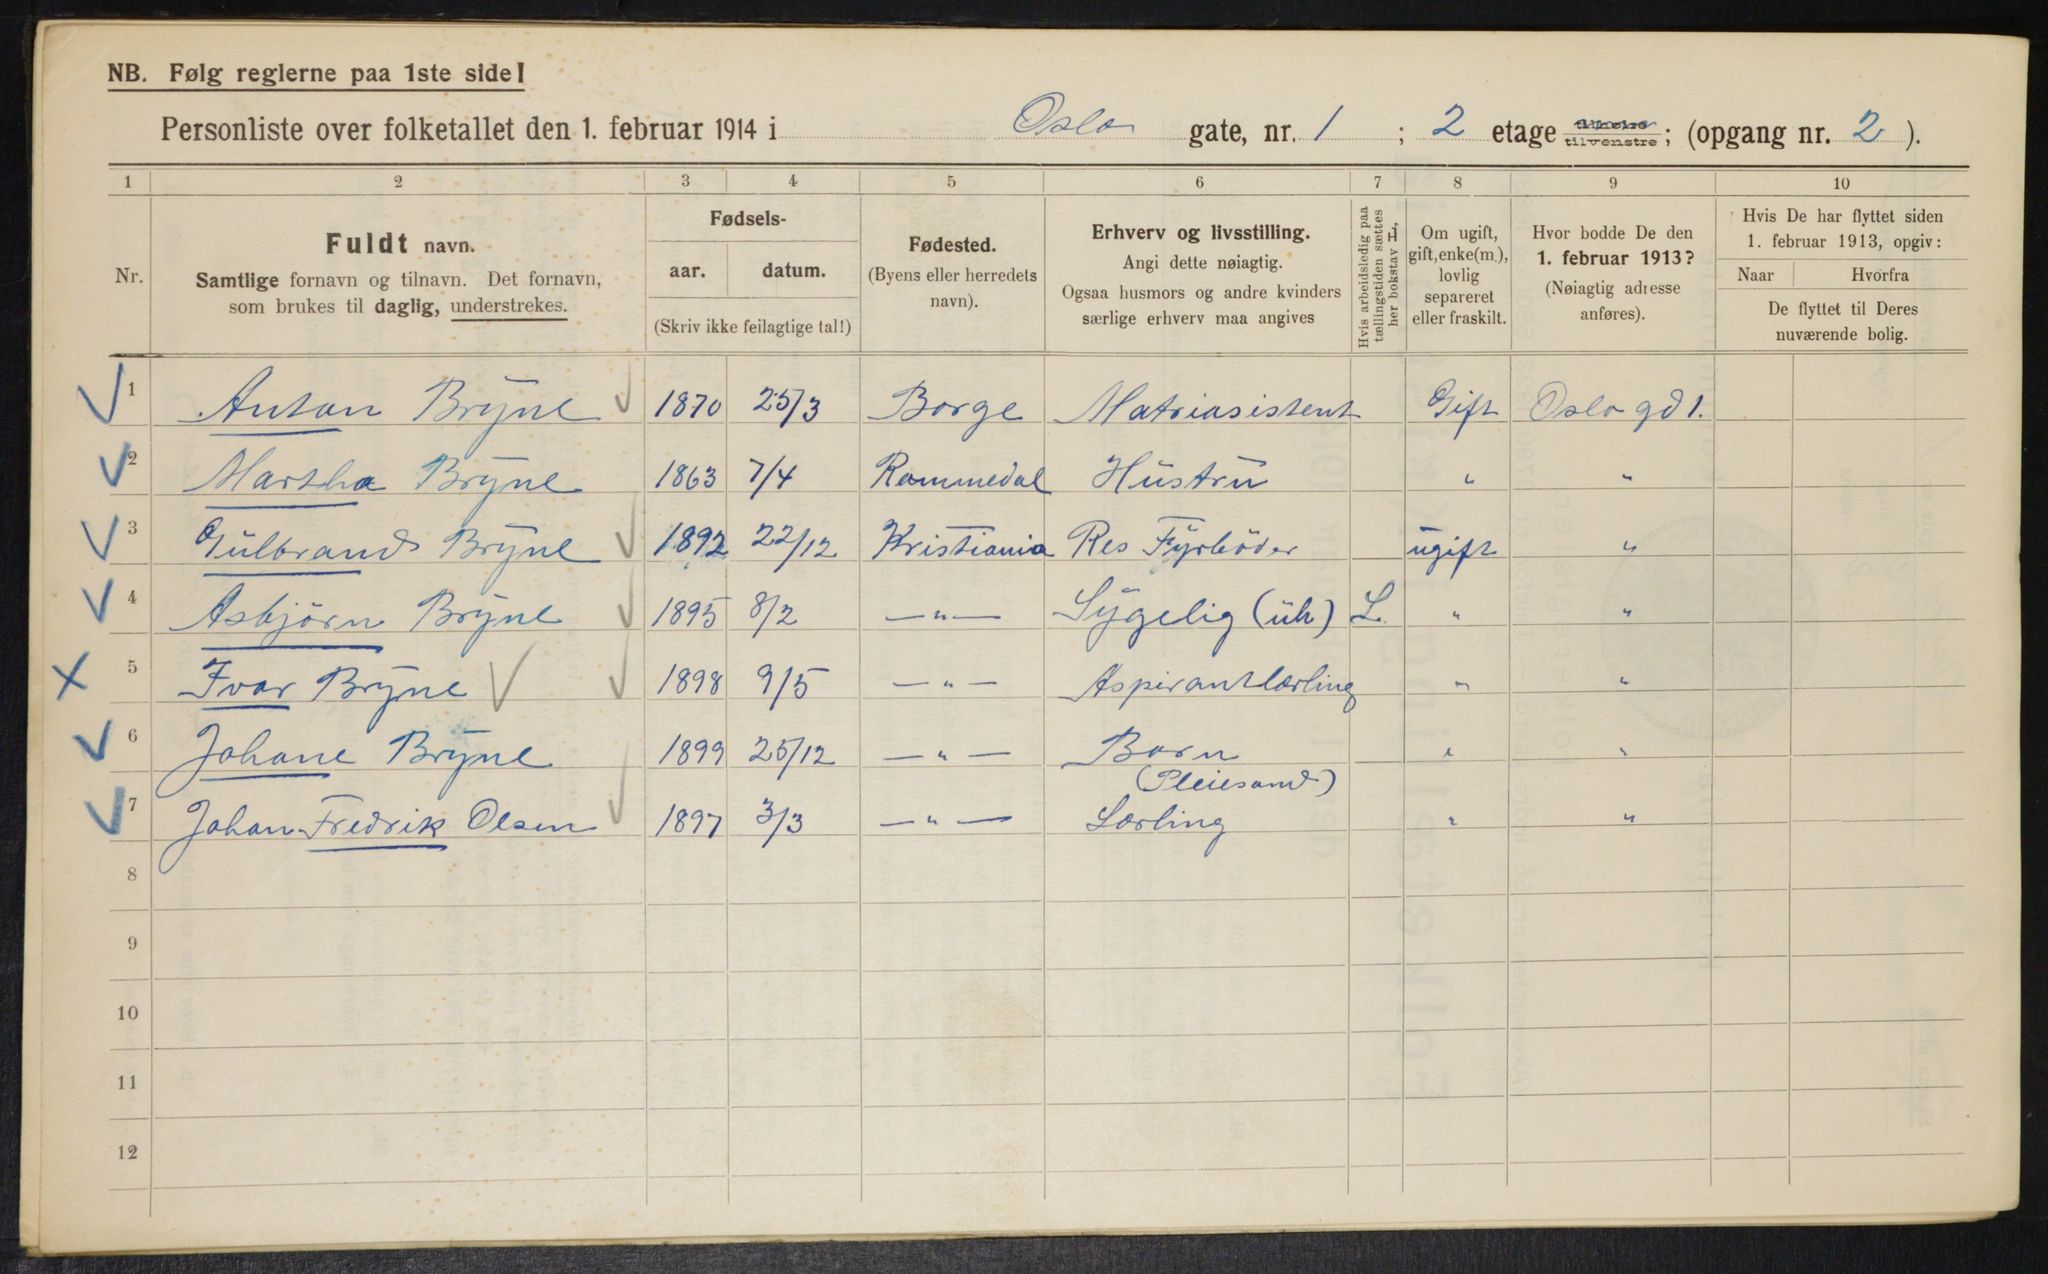 NB. Følg reglerne paa 1ste side!
Personliste over folketallet den 1. februar 1914 i Oslo gate, nr. 1 ; 2 etage tilhøire tilvenstre ; (opgang nr. 2 ).
1 2 3 4 5 6 7 8 9 10
Nr.
Fuldt navn.
Samtlige fornavn og tilnavn. Det fornavn,
som brukes til daglig, understrekes.
Fødsels-
aar. datum.
(Skriv ikke feilagtige tal!)
Fødested.
(Byens eller herredets
navn).
Erhverv og livsstilling.
Angi dette nøiagtig.
Ogsaa husmors og andre kvinders
særlige erhverv maa angives
Hvis arbeidsledig paa
tællingstiden sættes
her bokstav L.
Om ugift,
gift, enke(m.),
lovlig
separeret
eller fraskilt.
Hvor bodde De den
1. februar 1913?
(Nøiagtig adresse
anføres).
Hvis De har flyttet siden
1. februar 1913, opgiv:
Naar Hvorfra
De flyttet til Deres
nuværende bolig.
1 Anton Bryne 1870 25/3 Borge Matriasistent Gift Oslo gd 1.
2 Martha Bryne 1863 7/4 Rommedal Hustru " "
3 Gulbrand Bryne 1892 22/12 Kristiania Res Fyrböder ugift "
4 Asbjörn Bryne 1895 8/2 —"— Sygelig (uh) L " "
5 Ivar Bryne 1898 9/5 —"— Aspirantlærling " "
6 Johane Bryne 1899 25/12 —"— Barn " "
(Pleiesønd)
7 Johan Fredrik Olsen 1897 3/3 —"— Lærling " "
8
9
10
11
12